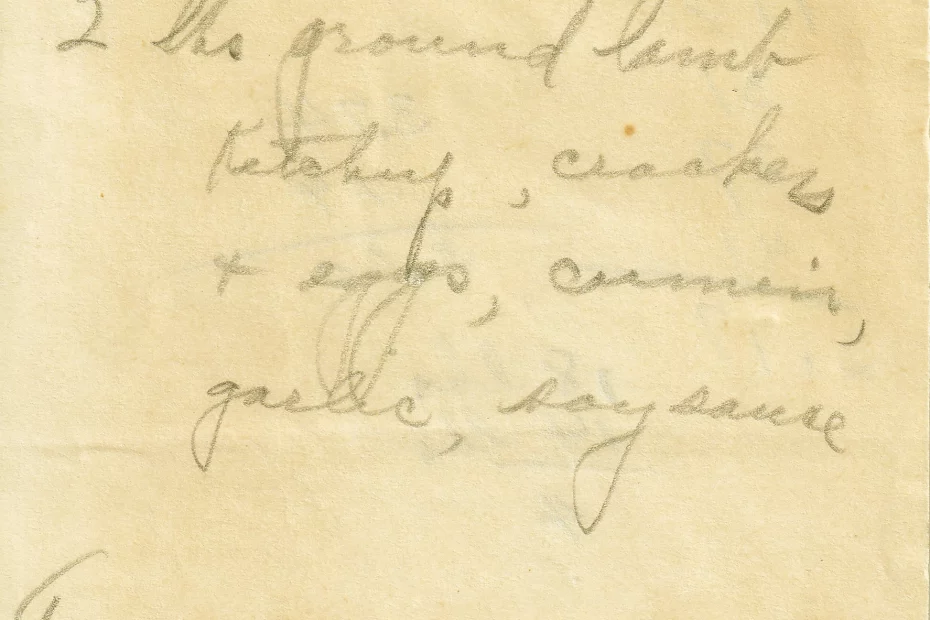 2 lbs ground lamb
Ketchup, crackers
+ eggs, cumein,
garlic, soy sause